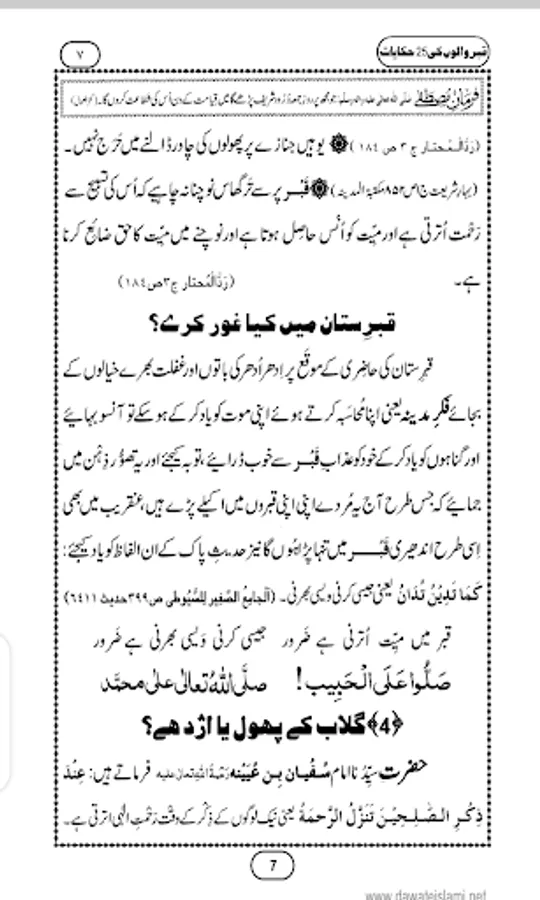 قبر والوں کی 25 حکایات
۷
فرمانِ مصطفےٰ صلی اللہ تعالیٰ علیہ واٰلہ وسلم: جو مجھ پر روزِ جمعہ دُرُود شریف پڑھے گا میں قیامت کے دن اُس کی شفاعت کروں گا۔
(رَدُّالْمُحتار ج ۳ ص ۱۸٤) ۞ یوہیں جنازے پر پھولوں کی چادر ڈالنے میں حَرَج نہیں۔
(بہارِ شریعت ج۱ص۸۵۲مکتبۃ المدینہ) ۞ قَبْر پر سے تَر گھاس نوچنا نہ چاہیے کہ اُس کی تسبیح سے
رَحْمت اُترتی ہے اور میِّت کو اُنس حاصِل ہوتا ہے اور نوچنے میں میِّت کا حق ضائِع کرنا
ہے۔ (رَدُّالْمُحتار ج۳ص۱۸٤)
قبرِستان میں کیا غور کرے؟
قبرِستان کی حاضِری کے موقَع پر اِدھر اُدھر کی باتوں اور غفلت بھرے خیالوں کے
بجائے فکرِ مدینہ یعنی اپنا مُحاسَبہ کرتے ہوئے اپنی موت کو یاد کر کے ہو سکے تو آنسو بہائیے
اور گناہوں کو یاد کر کے خود کو عذابِ قَبْر سے خوب ڈرائیے، توبہ کیجئے اور یہ تصوُّر ذِہْن میں
جمائیے کہ جس طرح آج یہ مُردے اپنی اپنی قبروں میں اکیلے پڑے ہیں، عنقریب میں بھی
اِسی طرح اندھیری قَبْر میں تنہا پڑا ہوں گا نیز حدیثِ پاک کے ان الفاظ کو یاد کیجئے:
كَمَا تَدِيْنُ تُدَانُ یعنی جیسی کرنی ویسی بھرنی۔ (اَلْجامِعُ الصَّغِیر لِلسُّیُوطی ص۳۹۹حدیث ۶۴۱۱)
قبر میں میِّت اُترنی ہے ضَرور جیسی کرنی وَیسی بھرنی ہے ضَرور
صَلُّوا عَلَى الْحَبِيب! صلَّی اللہُ تعالیٰ علیٰ محمَّد
﴿4﴾ گلاب کے پھول یا اژدھے؟
حضرت سیِّدُنا امام سُفْیان بِن عُیَیْنہ رَحْمَۃُ اللہِ تعالیٰ علیہ فرماتے ہیں: عِنْدَ
ذِکْرِ الصّٰلِحِیْنَ تَنَزَّلُ الرَّحْمَةُ یعنی نیک لوگوں کے ذِکْر کے وَقْت رَحْمتِ الٰہی اترتی ہے۔
7
www.dawateislami.net